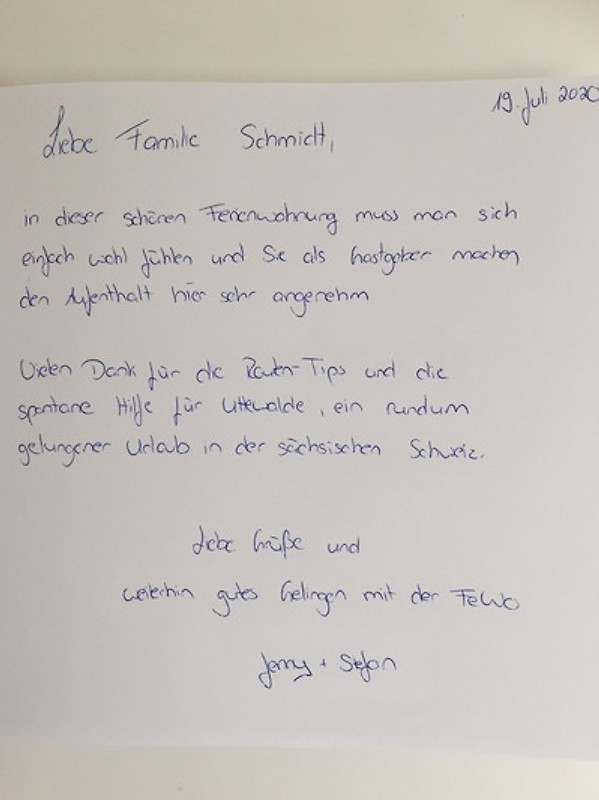 19. Juli 2020
Liebe Familie Schmidt,
in dieser schönen Ferienwohnung muss man sich
einfach wohl fühlen und Sie als Gastgeber machen
den Aufenthalt hier sehr angenehm
Vielen Dank für die Routen-Tips und die
spontane Hilfe für Uttewalde, ein rundum
gelungener Urlaub in der sächsischen Schweiz.
Liebe Grüße und
weiterhin gutes Gelingen mit der FeWo
Jenny + Stefan